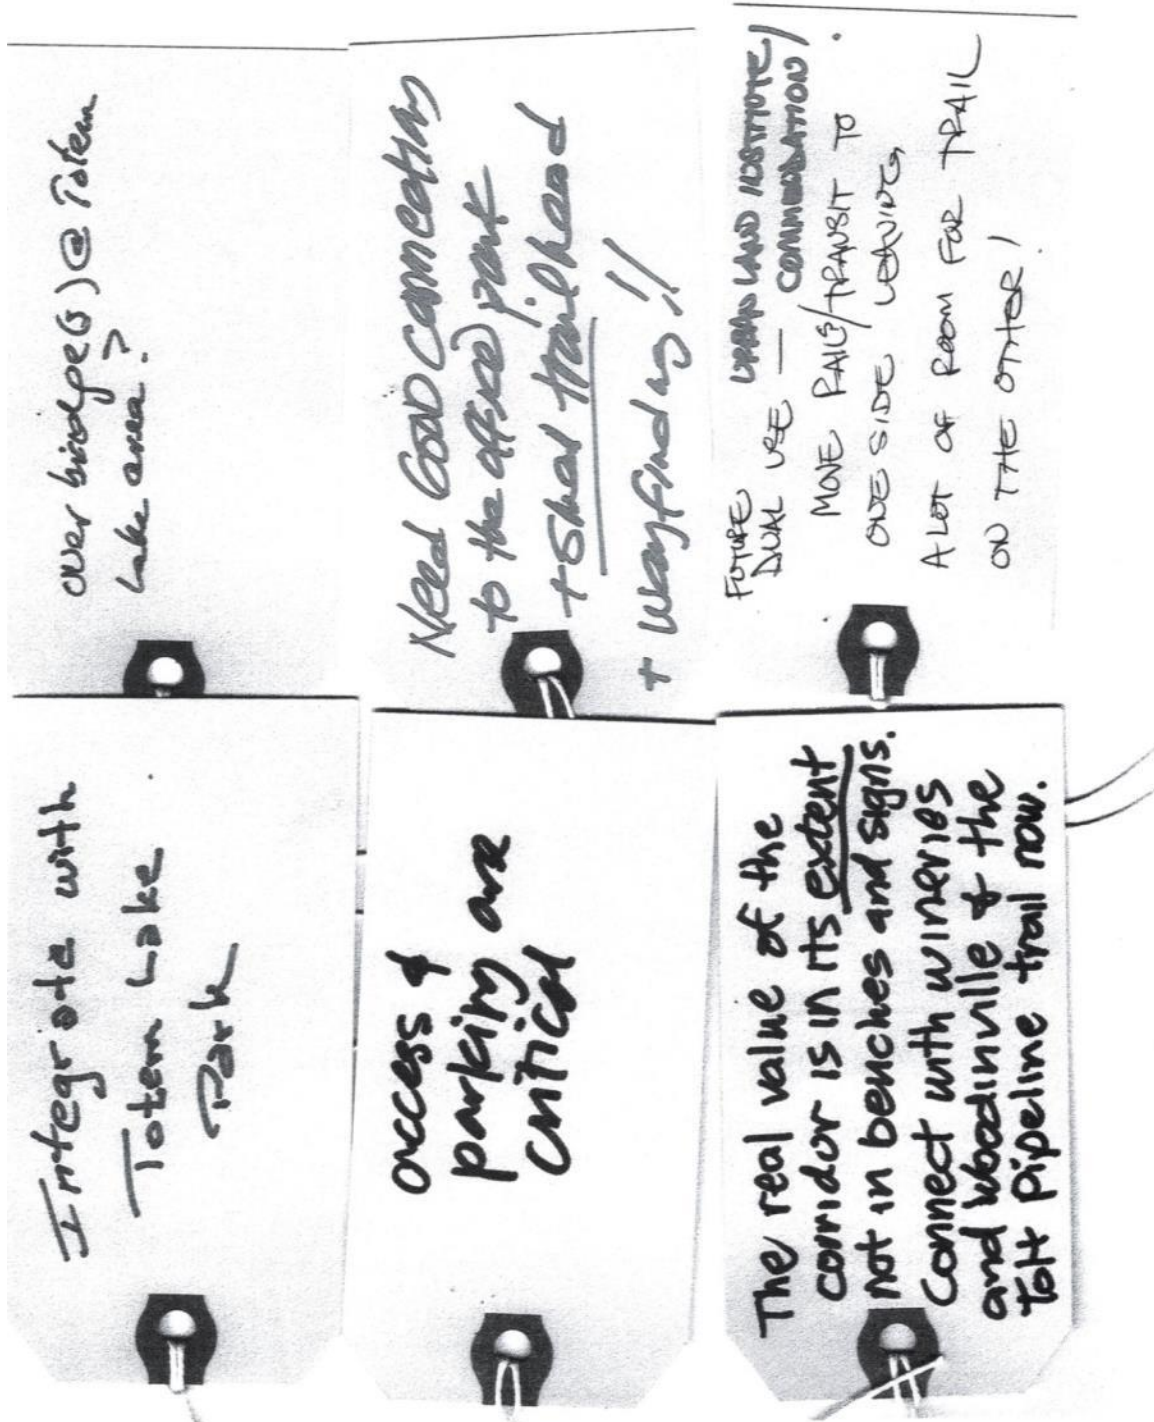 over bridge(s) @ Totem
Lake area?
Need GOOD connection
to the office park
+ Shel trailhead
+ wayfinding!!
FUTURE URBAN LAND INSTITUTE
DUAL USE — COMMENDATION!
MOVE RAILS/TRANSIT TO
ONE SIDE LEAVING
A LOT OF ROOM FOR TRAIL
ON THE OTHER!
Integrate with
Totem Lake
Park
access &
parking are
critical
The real value of the
corridor is in its extent
not in benches and signs.
Connect with wineries
and Woodinville & the
Tolt Pipeline trail now.